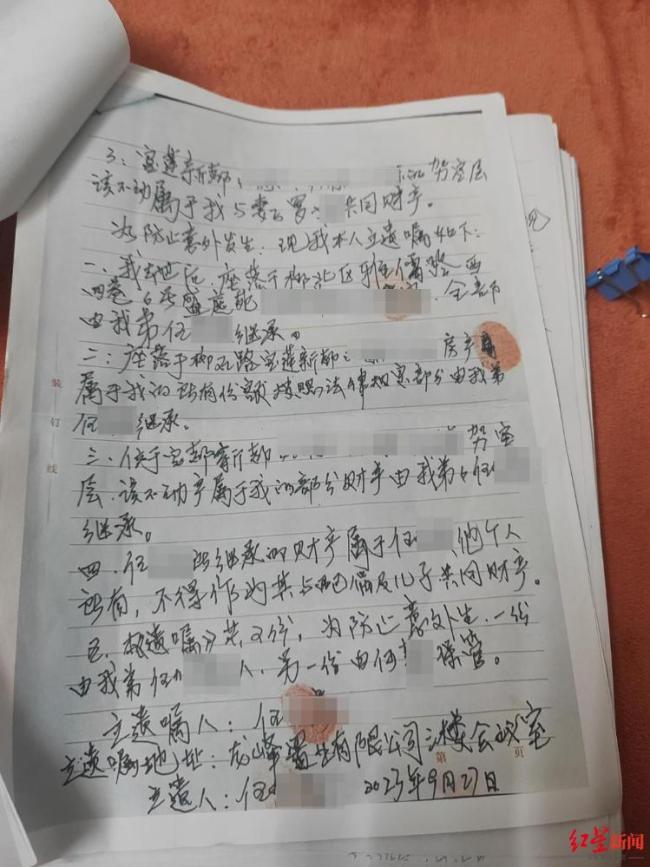 3：宝莲新都： 架空层
该不动属于我与妻子罗 共同财产。
为防止意外发生．现我本人立遗嘱如下：
一．我去世后．座落于柳北区雅儒路西
四巷6号 全部
由我弟任 继承。
二：座落于柳石路宝莲新都： 房产
属于我的所有份额按照法律规定部分由我弟
任 继承。
三．位于宝都新都 架空
层．该不动产属于我的部分财产由我弟任
继承。
四．任 所继承的财产属于任 他个人
所有，不得作为其与配偶及儿子共同财产。
五．本遗嘱 共2份，为防止意外生．一份
由我弟任 人．另一份由何 保管。
立遗嘱人：任
立遗嘱地址：龙峰置业有限公司三楼会议室
立遗人：任 2023年9月27日
装 订 线
第 页
红星新闻